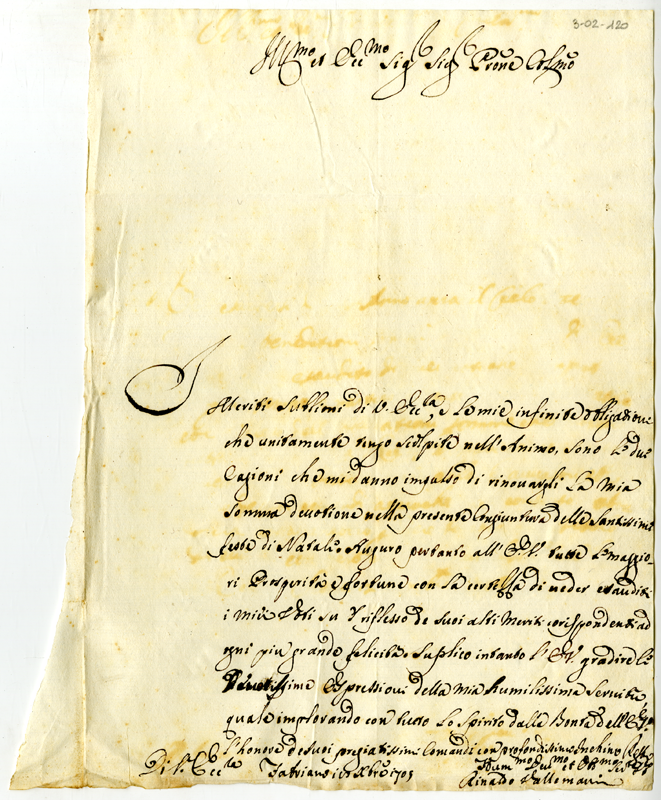 3-02-120
Ill.mo et Ecc.mo Sig.r Sig.r Prone Col.mo
I Meriti sublimi di V. Ecc.la, e le mie infinite obligationi
che unitamente tengo scolpite nell'Animo, sono le due
Cagioni che mi danno impulso di rinovargli la mia
somma devotione nella presente Congiuntura delle Santissime
feste di Natale. Auguro pertanto all'E.V. tutte le maggio-
ri Prosperità e fortune con la certezza di veder exauditi
i miei Voti su'l riflesso de suoi alti Meriti corrispondenti ad
ogni più grande felicità. Supplico intanto l'E.V. gradire le
Devotissime espressioni della mia humilissima Servitù
quale implorando con tutto lo Spirito dalla Bontà dell'E.V.
l'honore de suoi pregiatissimi Comandi con profondissimo Inchino
Di V. Ecc.la Fabriano Xbre 1703
Hum.mo Dev.mo et Obl.mo Ser.re
Rinaldo Vallemani